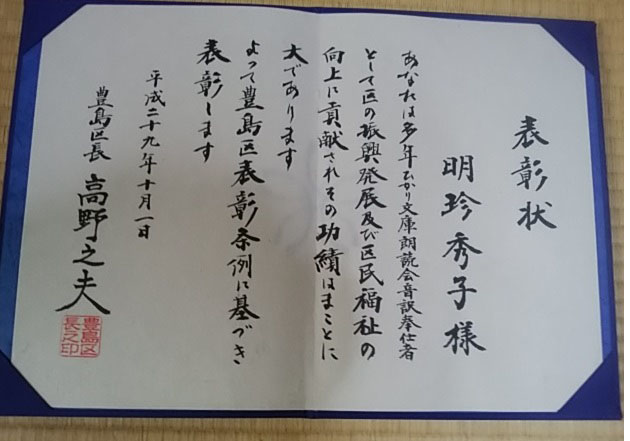 表彰状
明珍秀子様
あなたは多年ひかり文庫朗読会音訳奉仕者
として区の振興発展及び区民福祉の
向上に貢献されその功績はまことに
大であります
よって豊島区表彰条例に基づき
表彰します
平成二十九年十月一日
豊島区長 高野之夫
豊島区
長之印